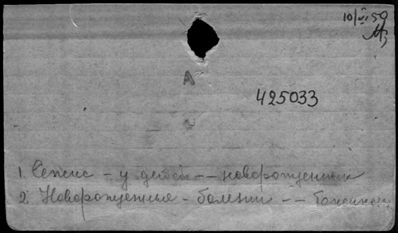 10/VI 59
А
425033
1. Сепсис - у детей -- новорожденных
2. Новорожденные - болезни --